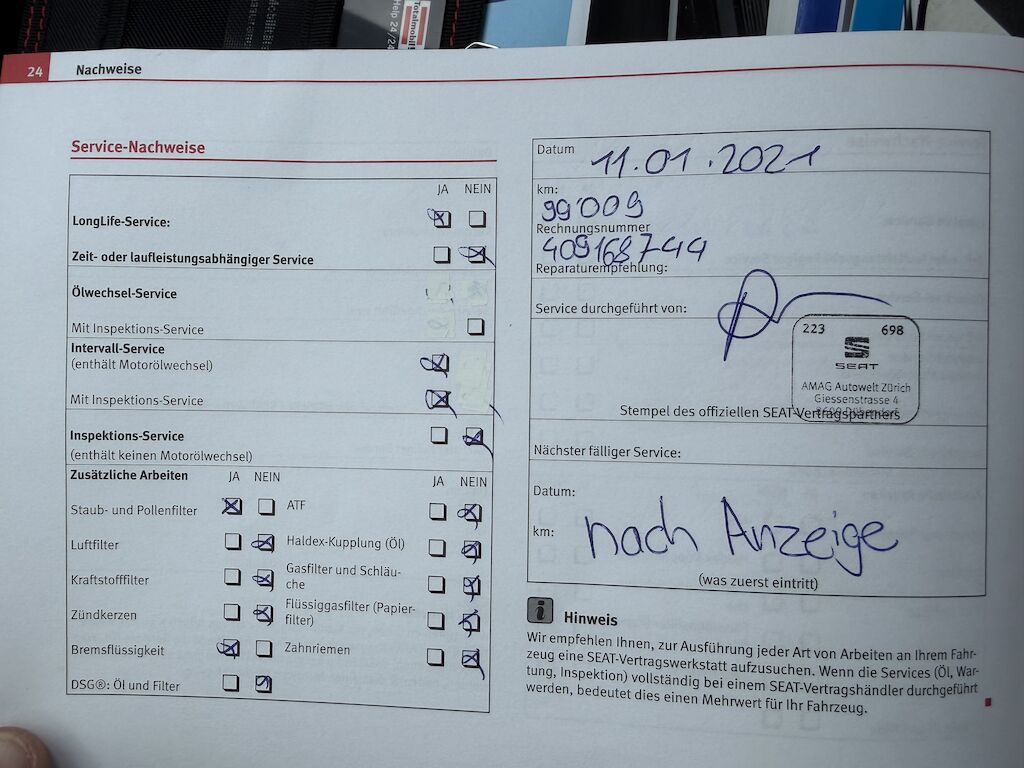 Help 24/24
Totalmobil!
24 Nachweise
Service-Nachweise
JA NEIN
LongLife-Service:
Zeit- oder laufleistungsabhängiger Service
Ölwechsel-Service
Mit Inspektions-Service
Intervall-Service
(enthält Motorölwechsel)
Mit Inspektions-Service
Inspektions-Service
(enthält keinen Motorölwechsel)
Zusätzliche Arbeiten JA NEIN JA NEIN
Staub- und Pollenfilter ATF
Luftfilter Haldex-Kupplung (Öl)
Kraftstofffilter Gasfilter und Schläu-
che
Zündkerzen Flüssiggasfilter (Papier-
filter)
Bremsflüssigkeit Zahnriemen
DSG®: Öl und Filter
Datum 11.01.2021
km:
99'009
Rechnungsnummer
409168744
Reparaturempfehlung:
Service durchgeführt von:
223 698
SEAT
AMAG Autowelt Zürich
Giessenstrasse 4
8600 Dübendorf
Stempel des offiziellen SEAT-Vertragspartners
Nächster fälliger Service:
Datum:
km: nach Anzeige
(was zuerst eintritt)
Hinweis
Wir empfehlen Ihnen, zur Ausführung jeder Art von Arbeiten an Ihrem Fahr-
zeug eine SEAT-Vertragswerkstatt aufzusuchen. Wenn die Services (Öl, War-
tung, Inspektion) vollständig bei einem SEAT-Vertragshändler durchgeführt
werden, bedeutet dies einen Mehrwert für Ihr Fahrzeug.